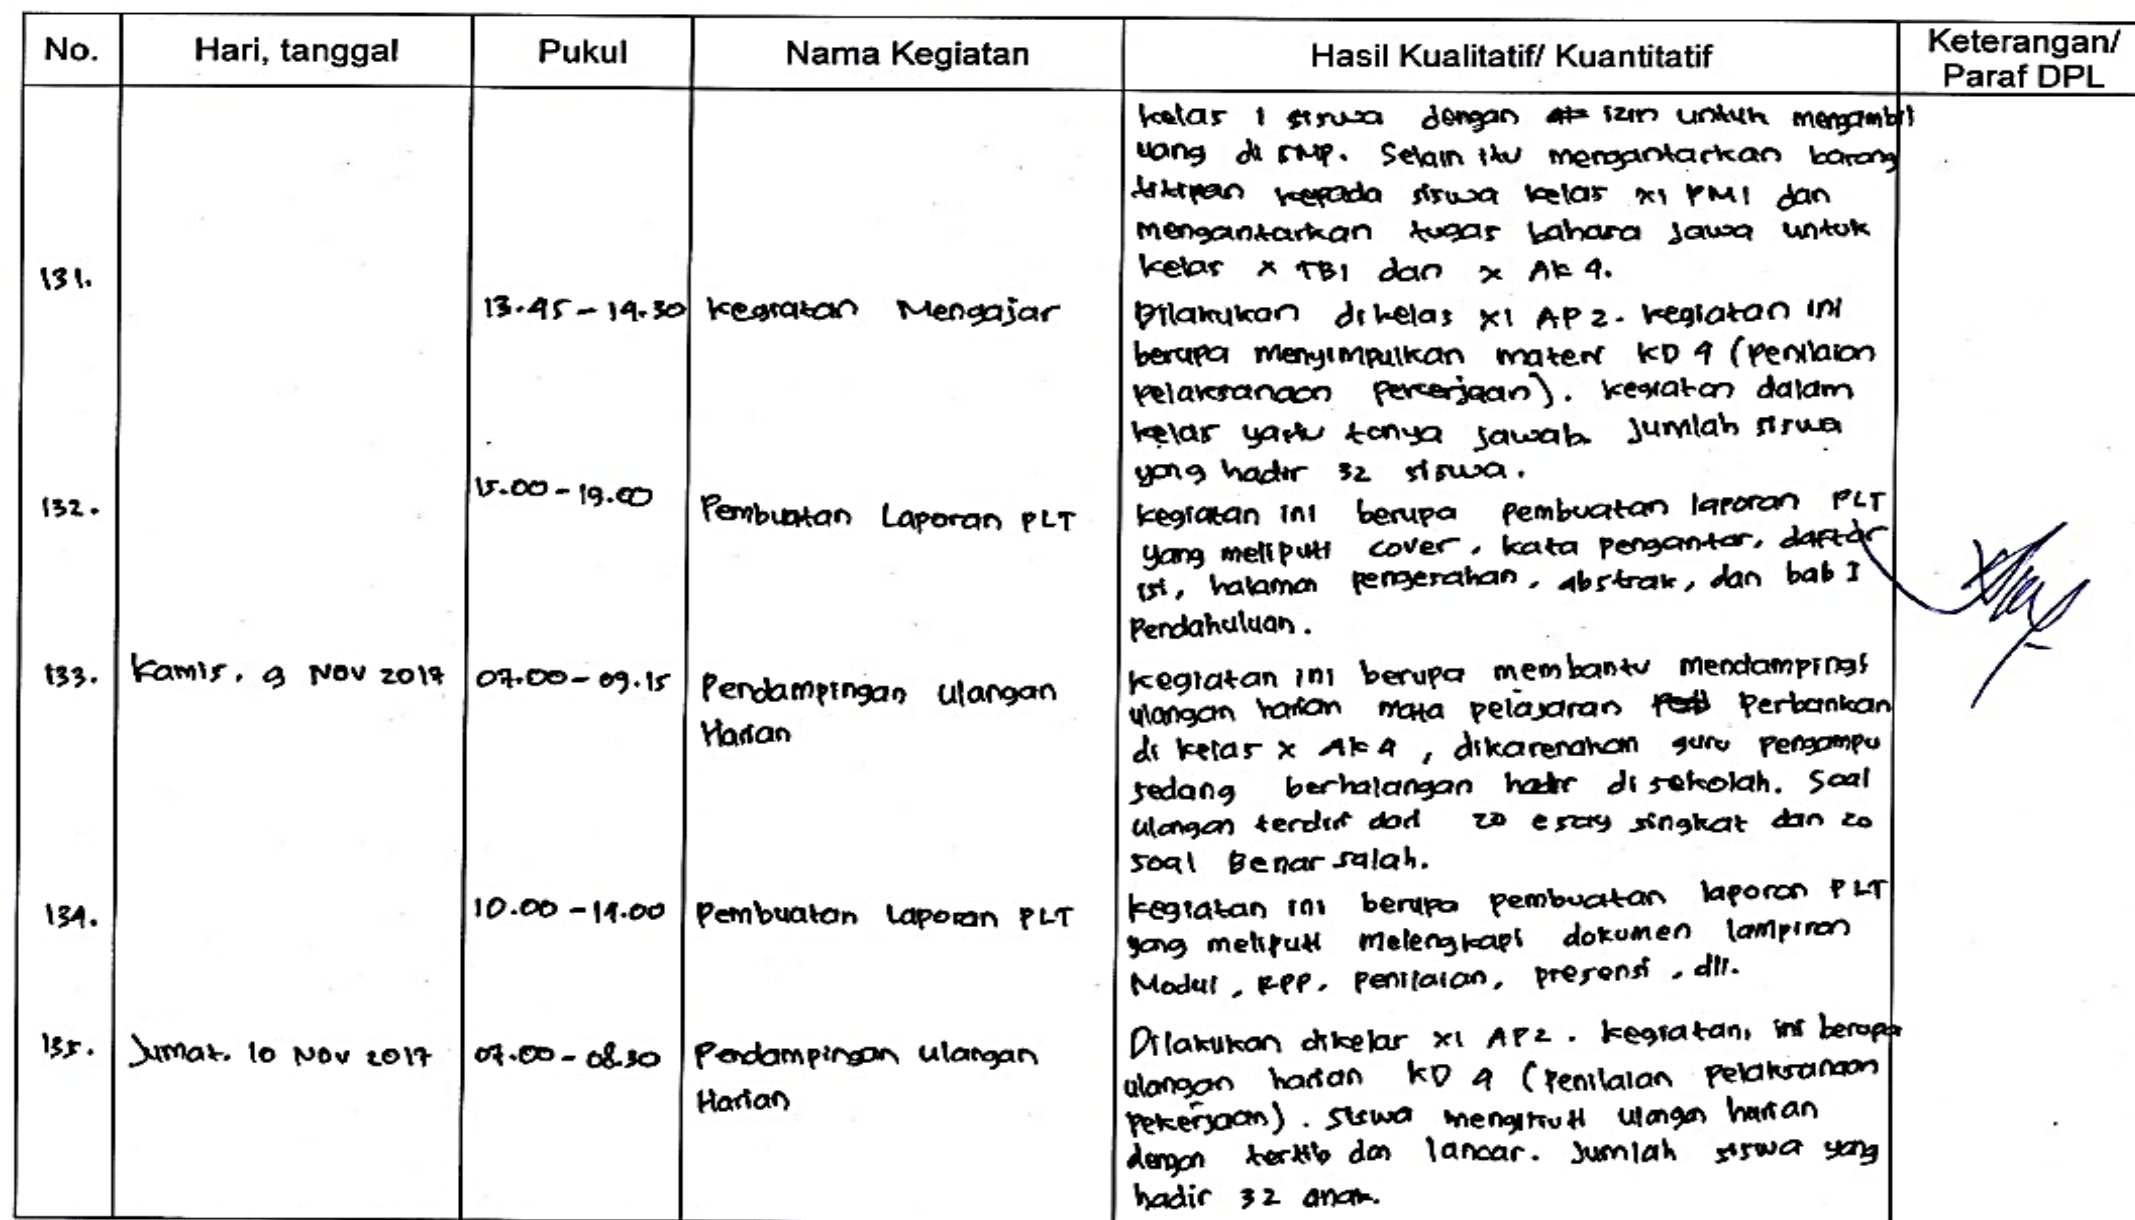 No. Hari, tanggal Pukul Nama Kegiatan Hasil Kualitatif/ Kuantitatif Keterangan/ Paraf DPL
kelas 1 siswa dengan izin untuk mengambil
uang di SMP. Selain itu mengantarkan barang
titipan kepada siswa kelas XI PM1 dan
mengantarkan tugas bahasa Jawa untuk
kelas X TB1 dan X AK 4.
131. 13.45 - 14.30 Kegiatan Mengajar Dilakukan dikelas XI AP 2. kegiatan ini
berupa menyimpulkan materi KD 4 (Penilaian
pelaksanaan Percerjaan). kegiatan dalam
kelas yaitu tanya jawab. Jumlah siswa
yang hadir 32 siswa.
132. 15.00 - 19.00 Pembuatan Laporan PLT kegiatan ini berupa pembuatan laporan PLT
yang meliputi cover, kata pengantar, daftar
isi, halaman pengesahan, abstrak, dan bab I
Pendahuluan.
133. Kamis, 9 Nov 2017 07.00 - 09.15 Pendampingan ulangan kegiatan ini berupa membantu mendampingi
Harian ulangan harian mata pelajaran Perbankan
di kelas X AK 4, dikarenakan guru pengampu
sedang berhalangan hadir di sekolah. Soal
ulangan terdiri dari 20 essay singkat dan 20
soal Benar salah.
134. 10.00 - 14.00 Pembuatan Laporan PLT kegiatan ini berupa pembuatan laporan PLT
yang meliputi melengkapi dokumen lampiran
Modul, RPP, penilaian, presensi, dll.
135. Jumat, 10 Nov 2017 07.00 - 08.30 Pendampingan ulangan Dilakukan dikelas XI AP2. kegiatan ini berupa
Harian ulangan harian KD 4 (Penilaian Pelaksanaan
Pekerjaan). Siswa mengikuti ulangan harian
dengan tertib dan lancar. Jumlah siswa yang
hadir 32 anak.